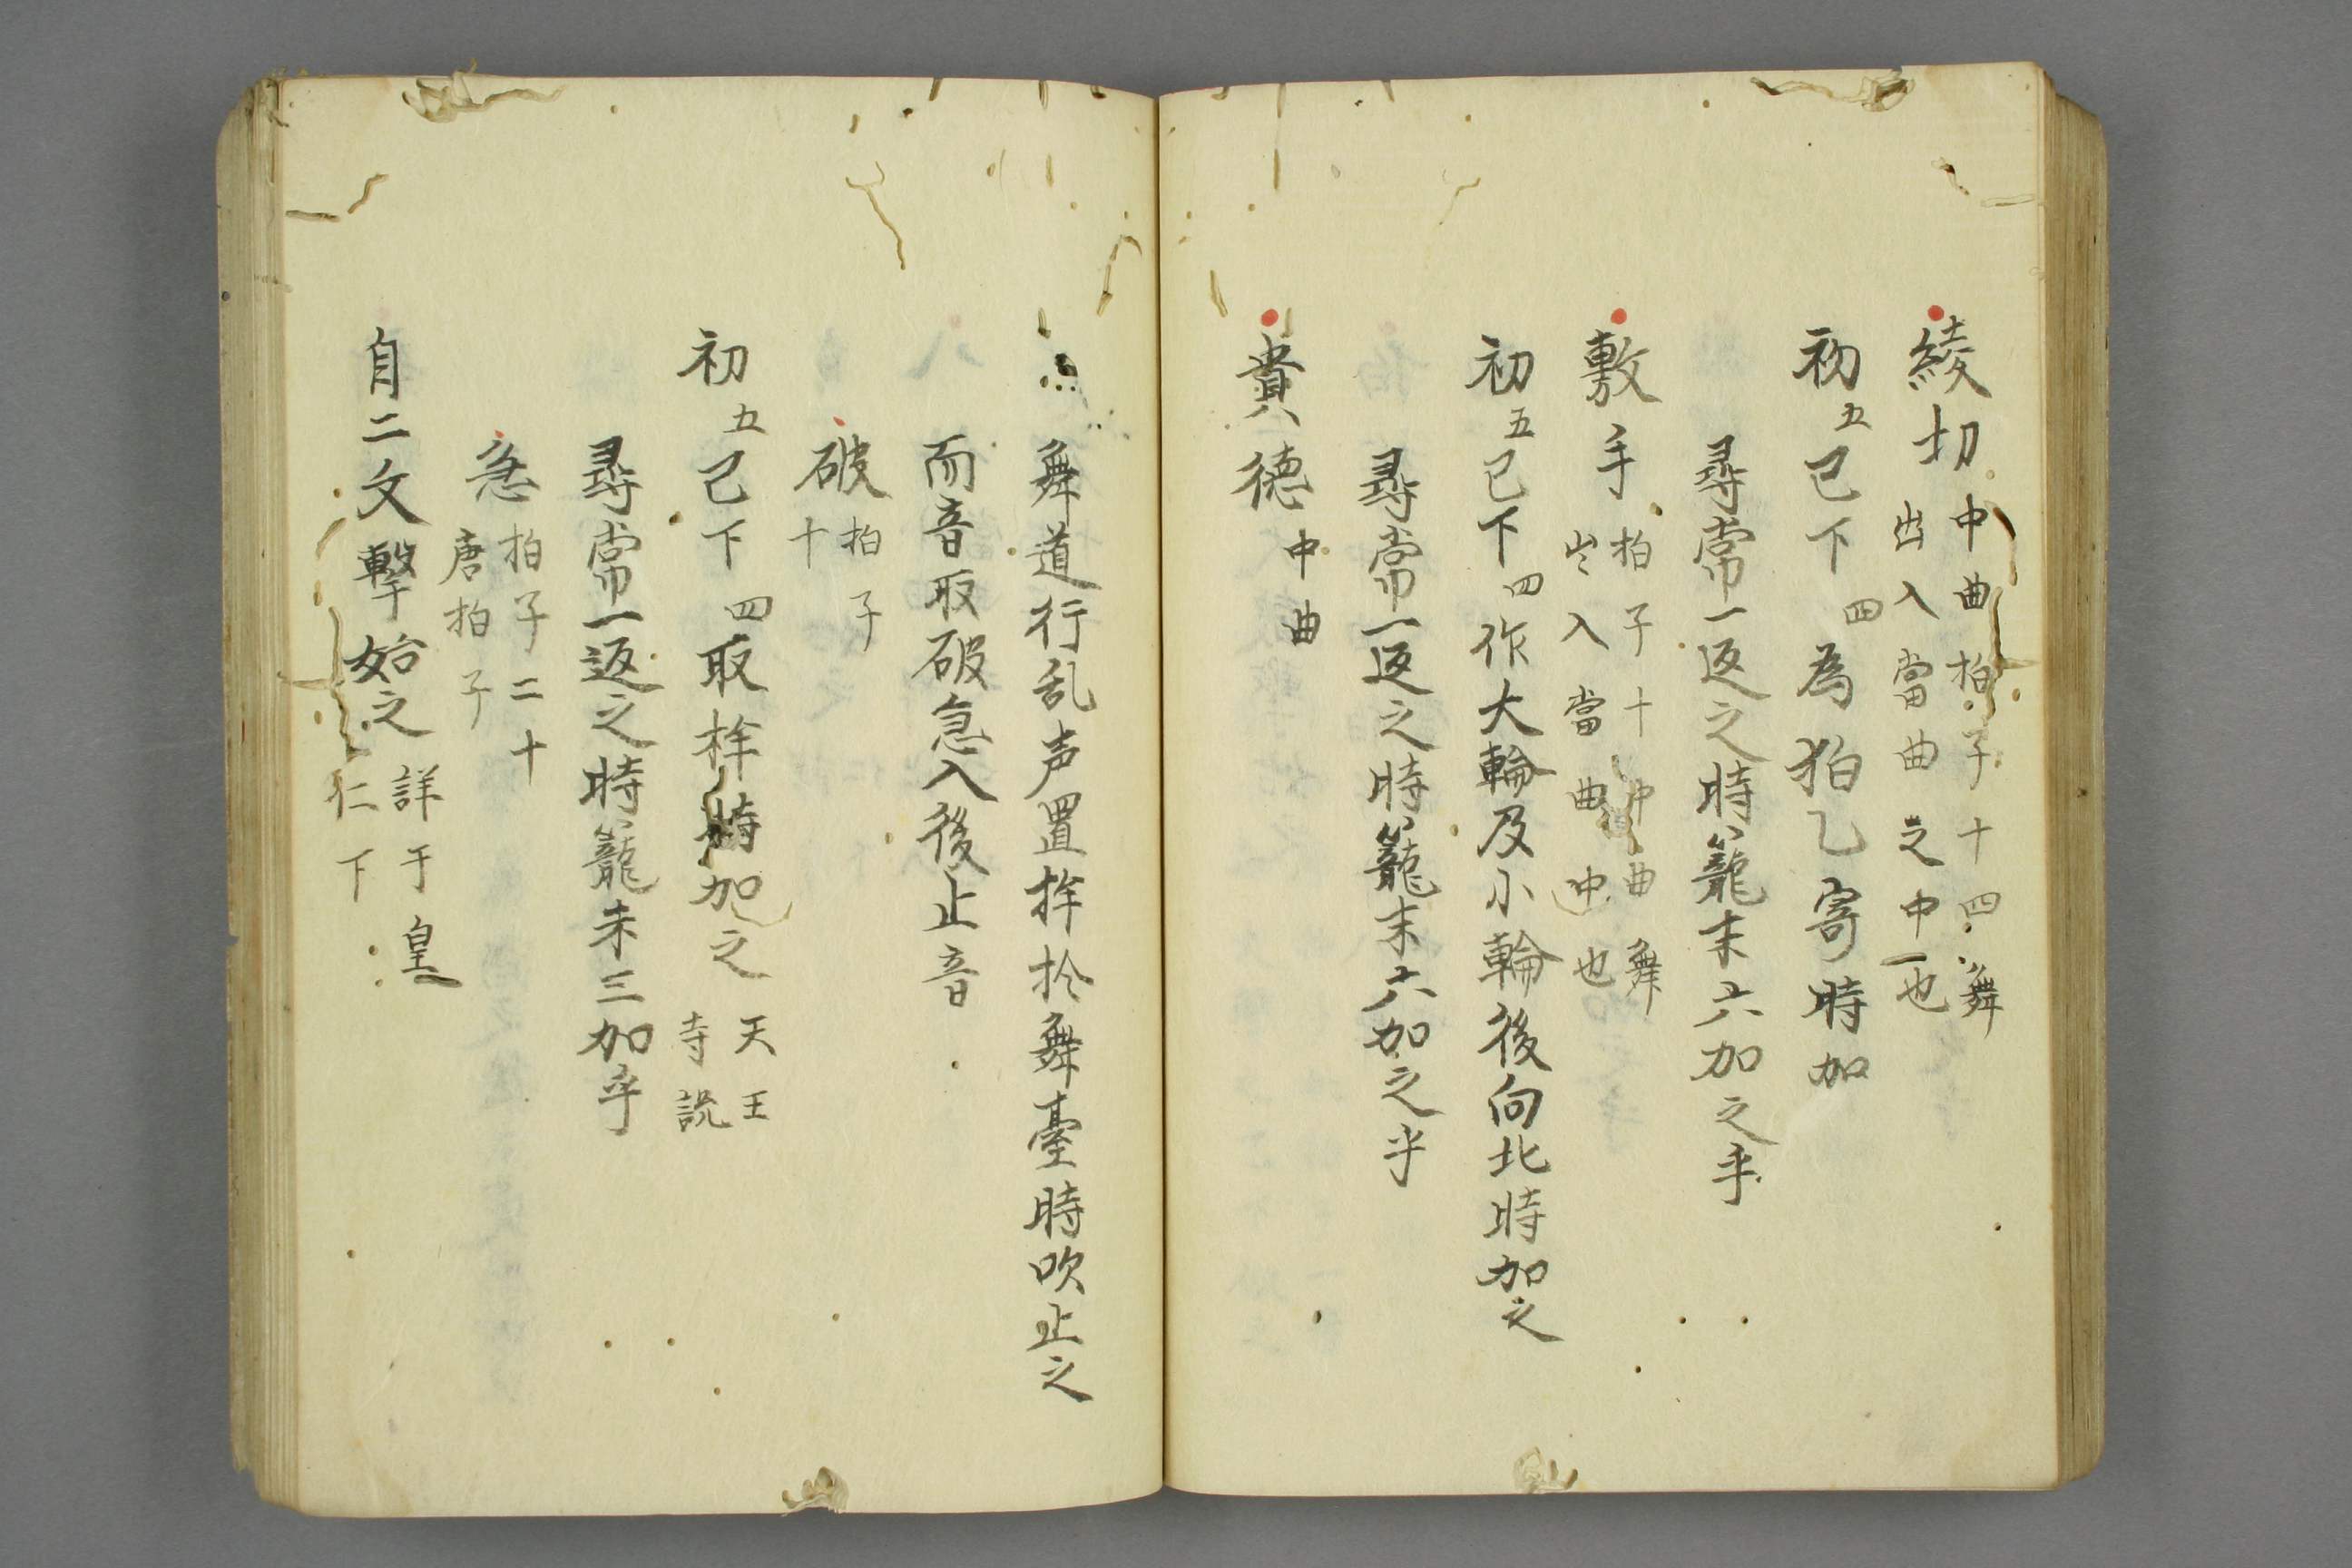 綾切 中曲拍子十四舞
出入當曲之中也
初五已下四為拍乙寄時加
尋常一返之時籠末六加之乎
敷手 拍子十中曲舞
出入當曲中也
初五已下四作大輪及小輪後向北時加之
尋常一返之時籠末六加之乎
貴徳 中曲
舞道行乱声置桙於舞臺時吹止之
而音取破急入後止音
破 拍子
十
初五已下四取桙時加之 天王
寺説
尋常一返之時籠末三加乎
急 拍子二十
唐拍子
自二文撃始之 詳于皇
仁下